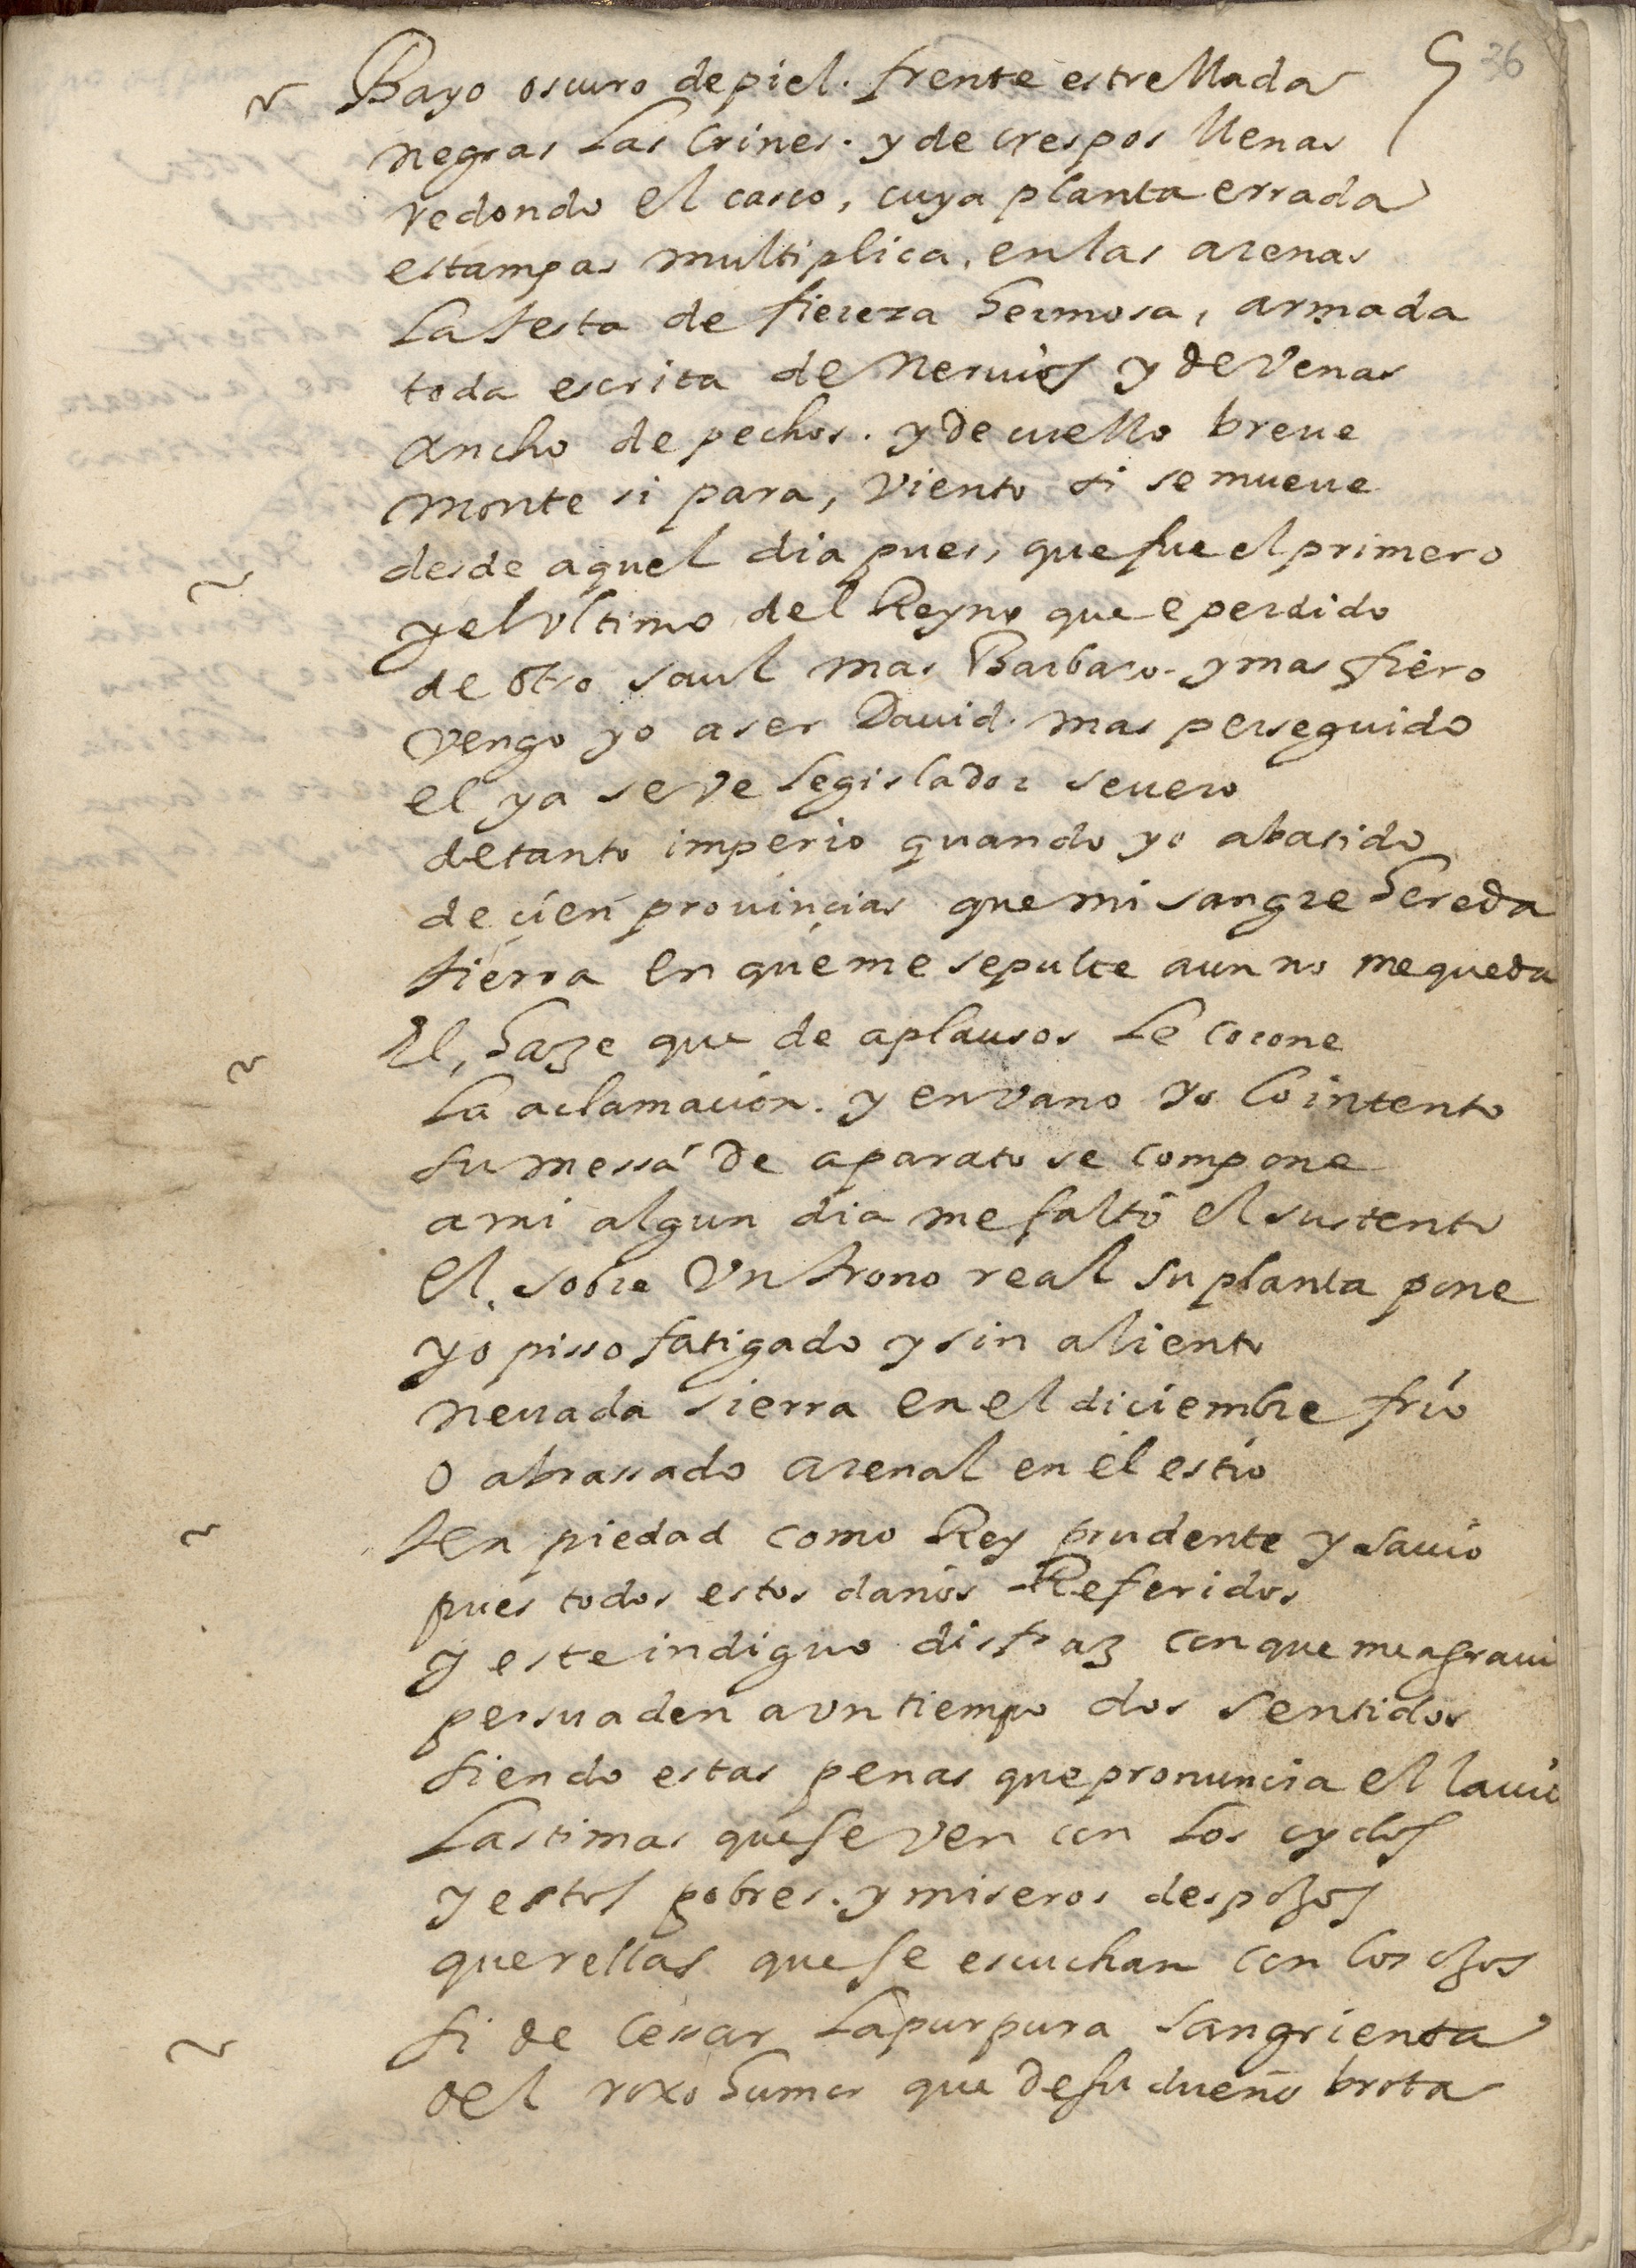 36
Bayo oscuro de piel. frente estrellada
negras Las Crines. y de crespos llenas
redondo el casco, cuya planta errada
estampas multiplica, en las arenas
La testa de fiereza hermosa, armada
toda escrita de Nervios y de Venas
ancho de pechos. y de cuello breue
monte si para, viento si se mueue
desde aquel dia pues, que fue el primero
y el vltimo del Reyno que e perdido
de otro saul mas Barbaro. y mas fiero
vengo yo a ser Dauid. mas perseguido
el ya se ve Legislador seuero
de tanto imperio quando yo abatido
de cien prouincias que mi sangre hereda
tierra en que me sepulte aun no me queda
El, haze que de aplausos Le corone
La aclamacion. y en vano yo lo intento
su messa de aparato se compone
a mi algun dia me faltó el sustento
El. sobre Vn trono real su planta pone
yo pisso fatigado y sin aliento
neuada sierra en el diciembre frio
o abrassado arenal en el estio
ten piedad como Rey prudente y sauio
pues todos estos daños Referidos
y este indigno disfraz con que me agraui
persuaden a vn tiempo dos sentidos
siendo estas penas que pronuncia el lauio
Lastimas que se ven con Los oydos
y estos pobres. y miseros despojos
querellas que se escuchan con los ojos
si de Cessar La purpura sangrienta
del roxo humor que de su dueño brota